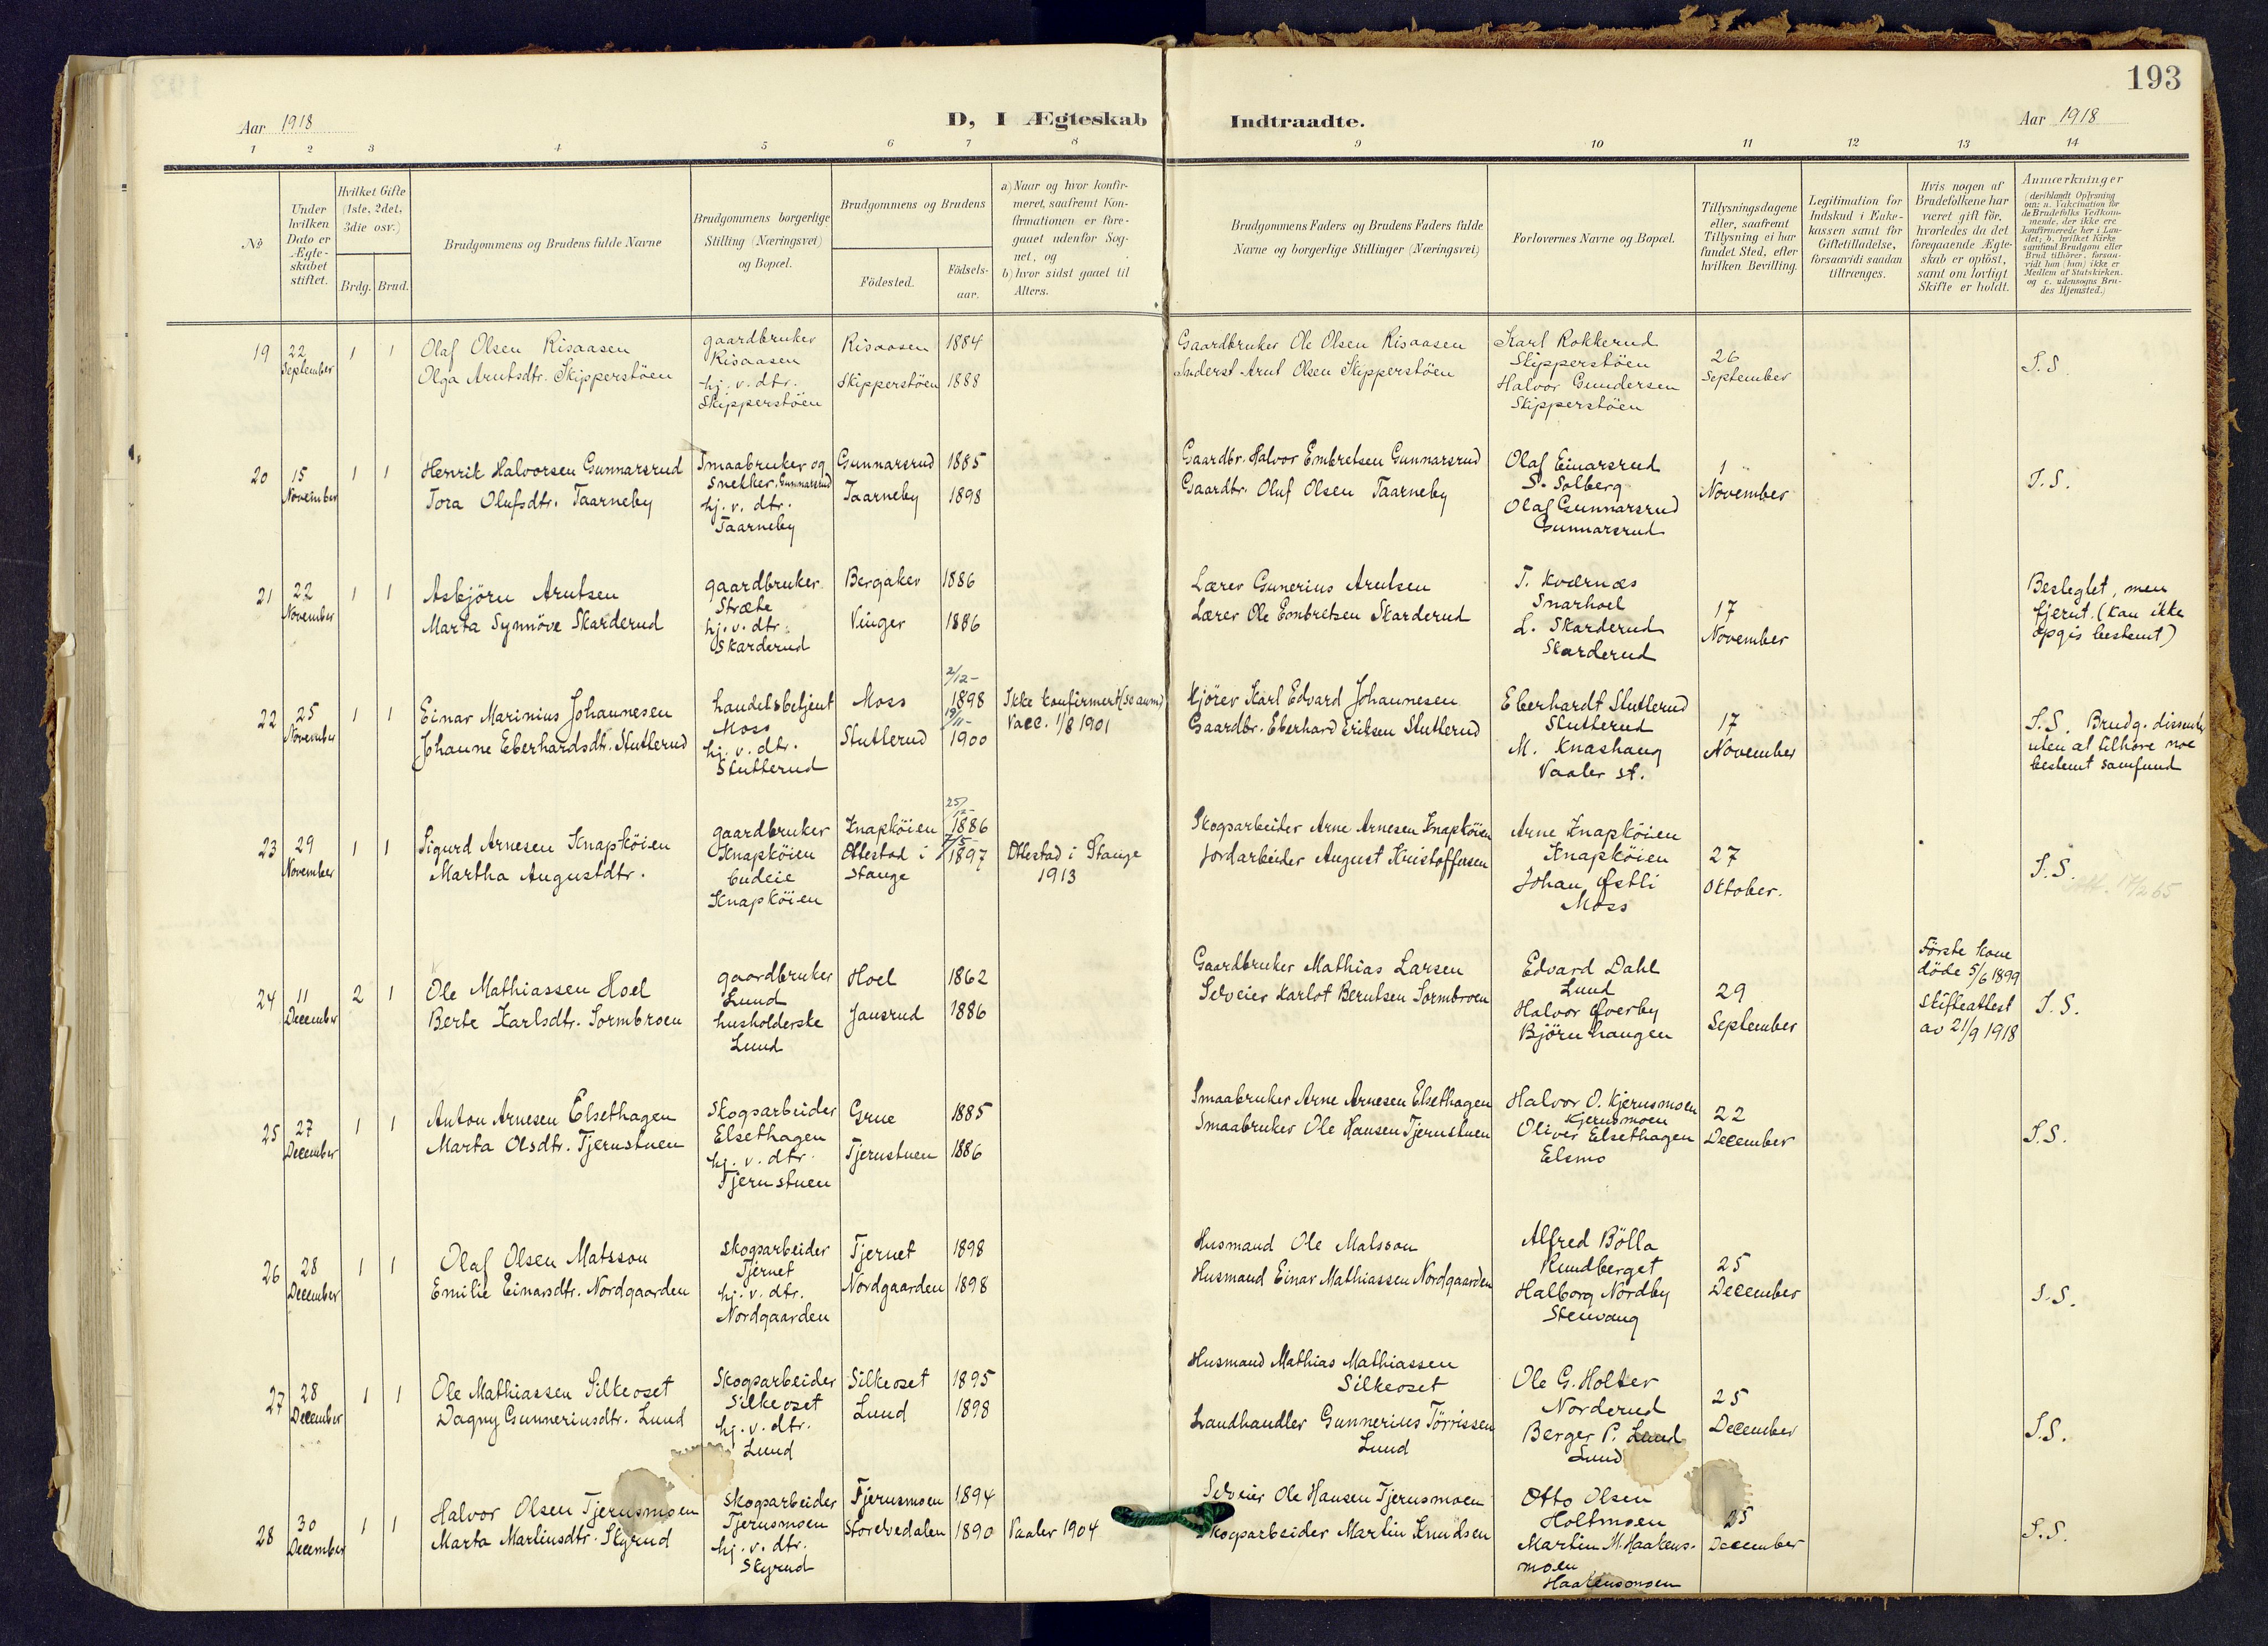 193
Aar 1918
D, I Ægteskab Indtraadte.
Aar 1918
1 2 3 4 5 6 7 8 9 10 11 12 13 14
№
Under hvilken Dato er Ægteskabet stiftet.
Hvilket Gifte (1ste, 2det, 3die osv.)
Brdg. Brud.
Brudgommens og Brudens fulde Navne
Brudgommens borgerlige Stilling (Næringsvei) og Bopæl.
Brudgommens og Brudens
Fødested.
Fødselsaar.
a) Naar og hvor konfirmeret, saafremt Konfirmationen er foregaaet udenfor Sognet, og
b) hvor sidst gaaet til Alters.
Brudgommens Faders og Brudens Faders fulde Navne og borgerlige Stillinger (Næringsvei)
Forlovernes Navne og Bopæl.
Tillysningsdagene eller, saafremt Tillysning ei har fundet Sted, efter hvilken Bevilling.
Legitimation for Indskud i Enkekassen samt for Giftetilladelse, forsaavidt saadan tiltrænges.
Hvis nogen af Brudefolkene har været gift før, hvorledes da det foregaaende Ægteskab er opløst, samt om lovligt Skifte er holdt.
Anmærkninger
(deriblandt Oplysning om: a. Vakcination for de Brudefolks Vedkommende, der ikke ere konfirmerede her i Landet; b. hvilket Kirkesamfund Brudgom eller Brud tilhører, forsaavidt han (hun) ikke er Medlem af Statskirken, og c. udensogns Brudes Hjemsted.)
19 22 September 1 1
Olaf Olsen Risaasen
Olga Arntsdtr. Skipperstöen
gaardbruker
Risaasen
hj. v. dtr.
Skipperstöen
Risaasen 1884
Skipperstöen 1888
Gaardbruker Ole Olsen Risaasen
Inderst Arnt Olsen Skipperstöen
Karl Rokkerud
Skipperstöen
Halvor Gundersen
Skipperstöen
26 September
S. S.
20 15 November 1 1
Henrik Halvorsen Gunnarsrud
Tora Olufsdtr. Taarneby
Smaabruker og
Snekker, Gunnarsrud
hj. v. dtr.
Taarneby
Gunnarsrud 1885
Taarneby 1898
Gaardbr. Halvor Embretsen Gunnarsrud
Gaardbr. Oluf Olsen Taarneby
Olaf Einarsrud
S. Solberg
Olaf Gunnarsrud
Gunnarsrud
1 November
S. S.
21 22 November 1 1
Asbjörn Arntsen
Marta Synnöve Skarderud
gaardbruker
Stræte
hj. v. dtr.
Skarderud
Bergaker 1886
Vinger 1886
Lærer Gunerius Arntsen
Lærer Ole Embretsen Skarderud
T. Kværnæs
Snarhoel
L. Skarderud
Skarderud
17 November
Beslegtet, men
fjernt. (kan ikke
opgis bestemt)
22 25 November 1 1
Einar Marinius Johannesen
Johanne Eberhardsdtr. Stutlerud
handelsbetjent
Moss
hj. v. dtr.
Stutterud
Moss 2/12- 1898
Stutlerud 19/11- 1900
Ikke konfirmert (se anm)
Vacc. 1/8 1901
Kjörer Karl Edvard Johannesen
Gaardbr. Eberhard Eriksen Stutlerud
Eberhardt Stutlerud
Stutlerud
M. Knashaug
Vaaler st.
17 November
S. S. Brudg. dissenter
uten at tilhöre noe
bestemt samfund
23 29 November 1 1
Sigurd Arnesen Knapköien
Martha Augustdtr.
gaardbruker
Knapköien
budeie
Knapköien
Knapköien 25/12- 1886
Ottestad i Stange 7/5- 1897
Ottestad i Stange
1913
Skogsarbeider Arne Arnesen Knapköien
Jordarbeider August Kristoffersen
Arne Knapköien
Knapköien
Johan Østli
Moss
27 Oktober.
S. S.
24 11 December 2 1
Ole Mathiassen Hoel
Berte Karlsdtr. Sormbroen
gaardbruker
Lund
husholderske
Lund
Hoel 1862
Jansrud 1886
Gaardbruker Mathias Larsen
Selveier Karlot Berntsen Sormbroen
Edvard Dahl
Lund
Halvor Øverby
Björnhaugen
29 September
Förste kone
döde 5/6 1899
Skifteattest
av 21/9 1918
S. S.
25 27 December 1 1
Anton Arnesen Elsethagen
Marta Olsdtr. Tjernstuen
Skogsarbeider
Elsethagen
hj. v. dtr.
Tjernstuen
Grue 1885
Tjernstuen 1886
Smaabruker Arne Arnesen Elsethagen
Smaabruker Ole Hansen Tjernstuen
Halvor O. Kjernsmoen
Kjernsmoen
Oliver Elsethagen
Elsmo
22 December
S. S.
26 28 December 1 1
Olaf Olsen Matsson
Emilie Einarsdtr. Nordgaarden
Skogsarbeider
Tjernet
hj. v. dtr.
Nordgaarden
Tjernet 1898
Nordgaarden 1898
Husmand Ole Matsson
Husmand Einar Mathiassen Nordgaarden
Alfred Bölla
Rundberget
Halborg Nordby
Stenvang
25 December
S. S.
27 28 December 1 1
Ole Mathiassen Silkeoset
Dagny Gunneriusdtr. Lund
Skogsarbeider
Silkeoset
hj. v. dtr.
Lund
Silkeoset 1895
Lund 1898
Husmand Mathias Mathiassen
Silkeoset
Landhandler Gunnerius Törrissen
Lund
Ole G. Holter
Norderud
Berger P. Lund
Lund
25 December
S. S.
28 30 December 1 1
Halvor Olsen Tjernsmoen
Marta Martinsdtr. Skyrud
Skogsarbeider
Tjernsmoen
hj. v. dtr.
Skyrud
Tjernsmoen 1894
Storelvedalen 1890
Vaaler 1904
Selveier Ole Hansen Tjernsmoen
Skogsarbeider Martin Knudsen
Otto Olsen
Holtmoen
Martin M. Haakens-
moen
Haakensmoen
25 December
S. S.